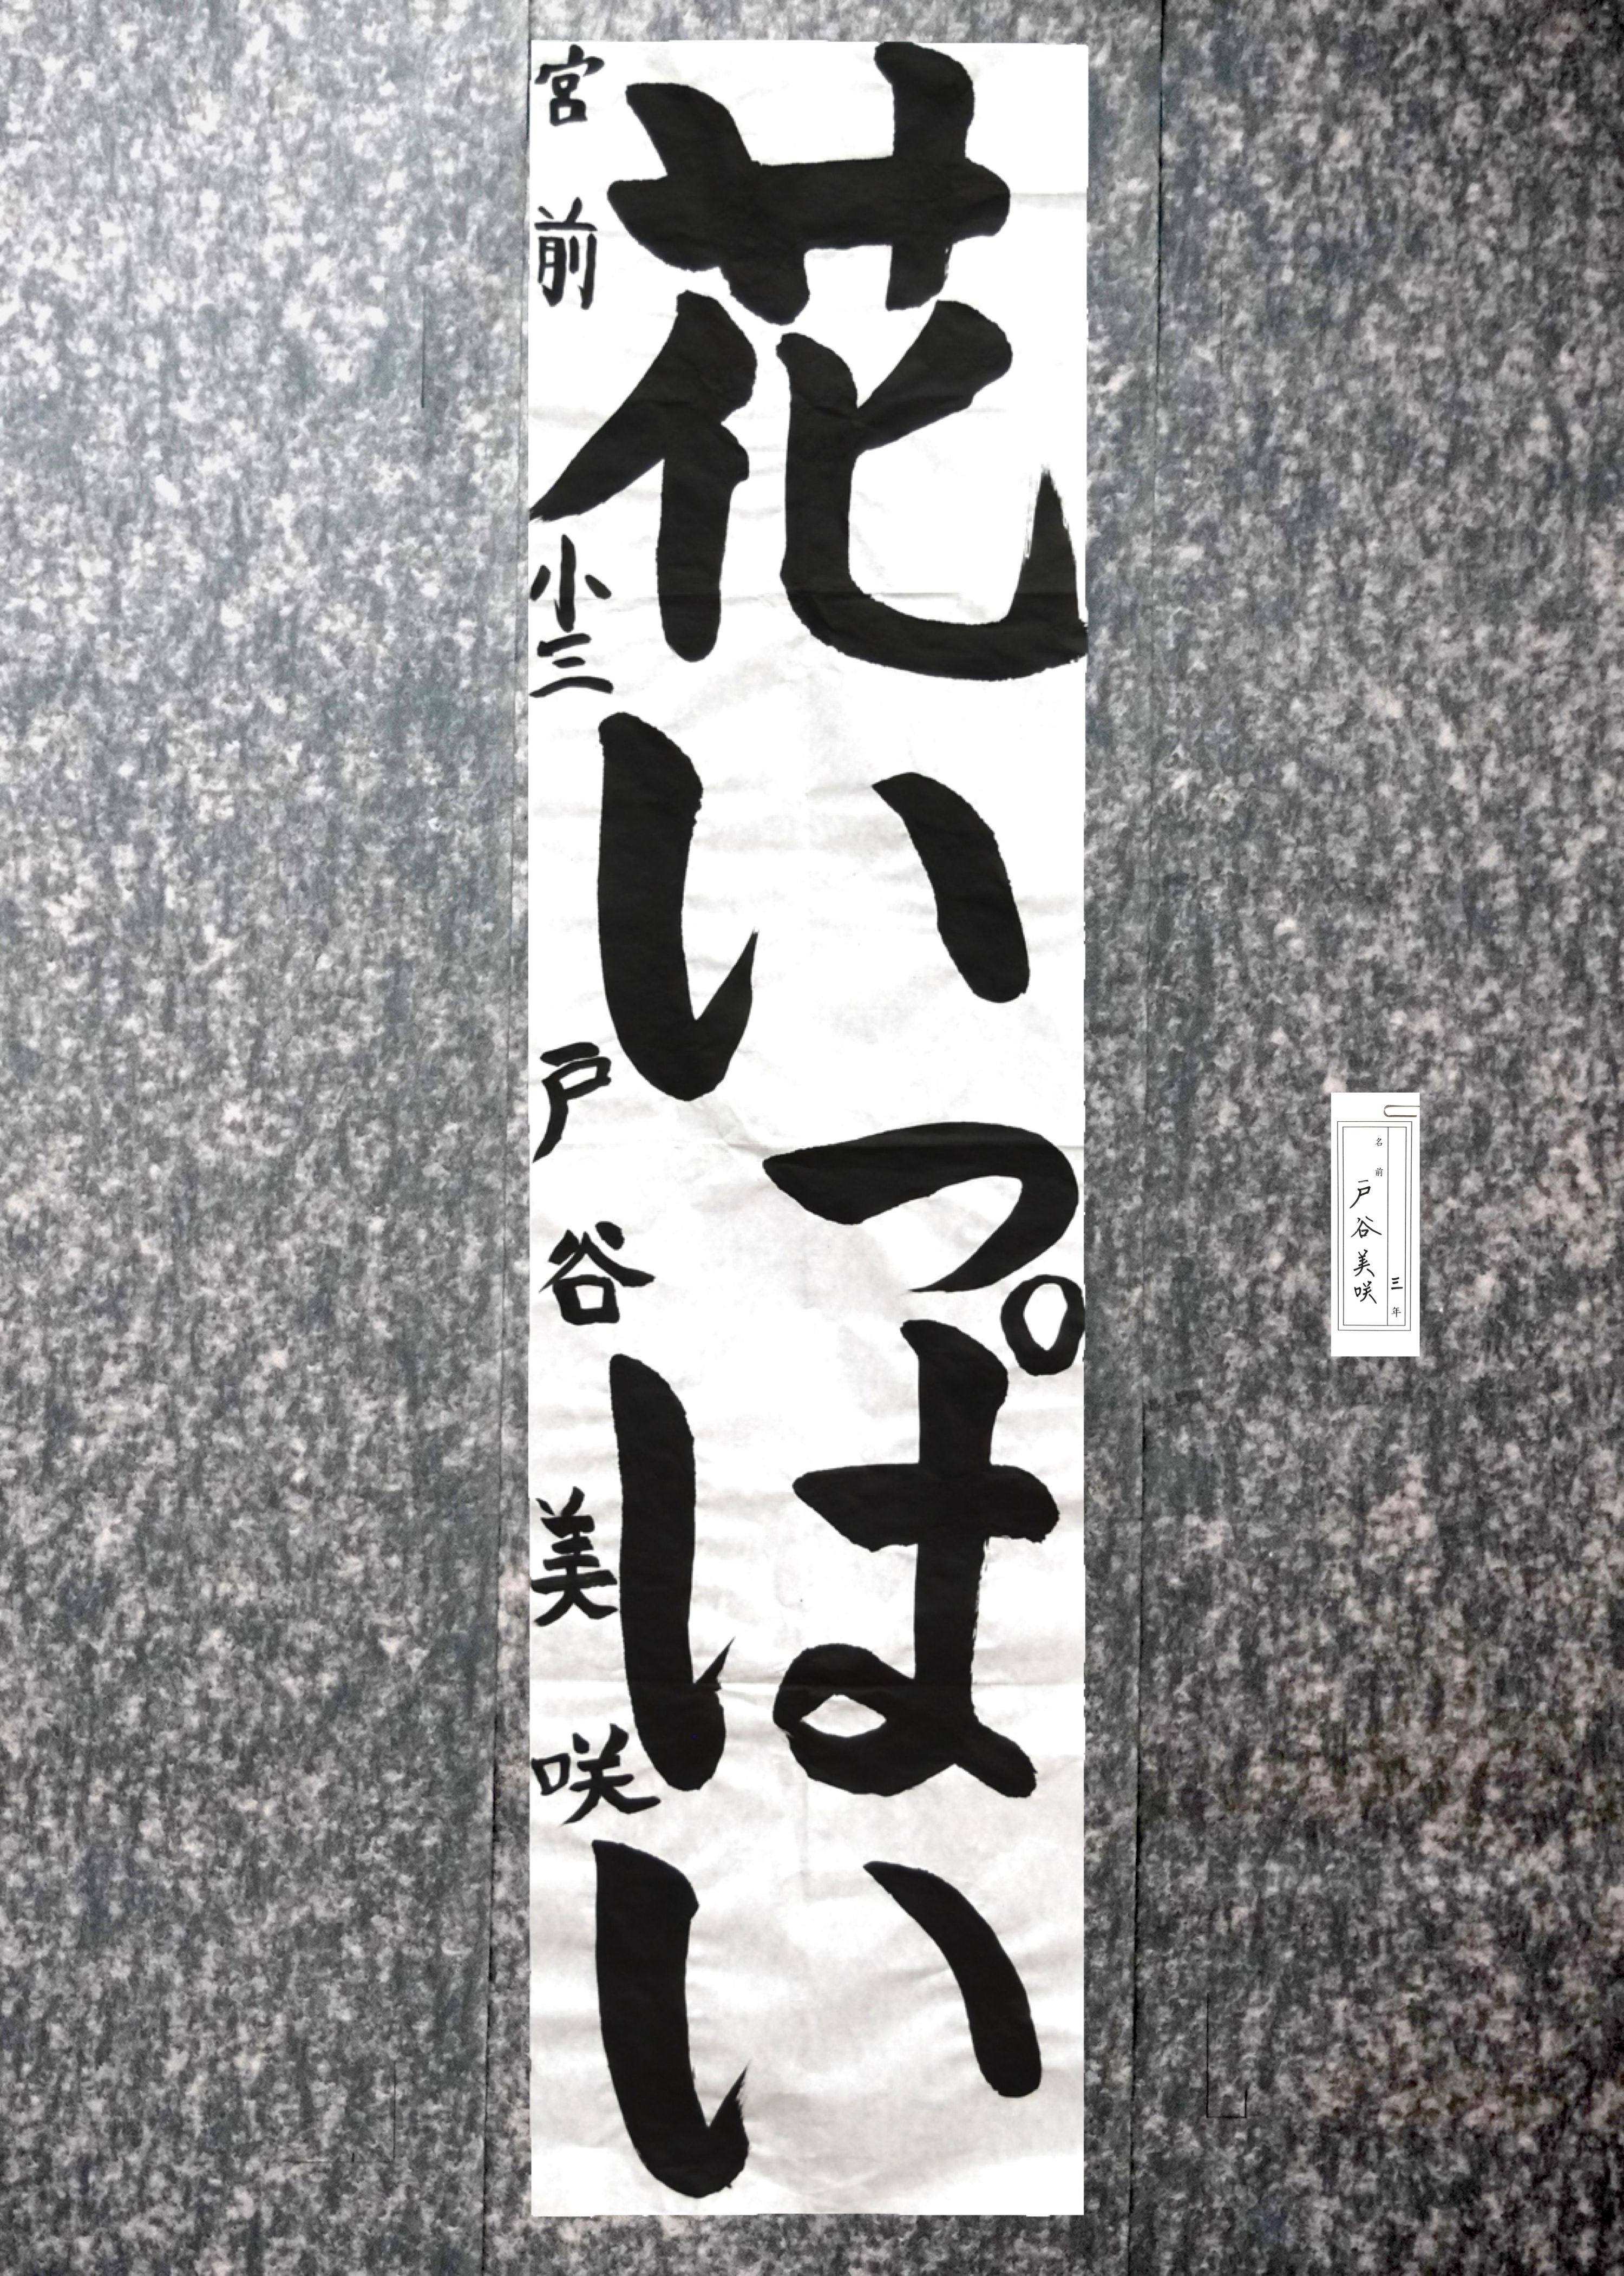 花いっぱい
宮前小三 戸谷美咲
三年
名前 戸谷美咲